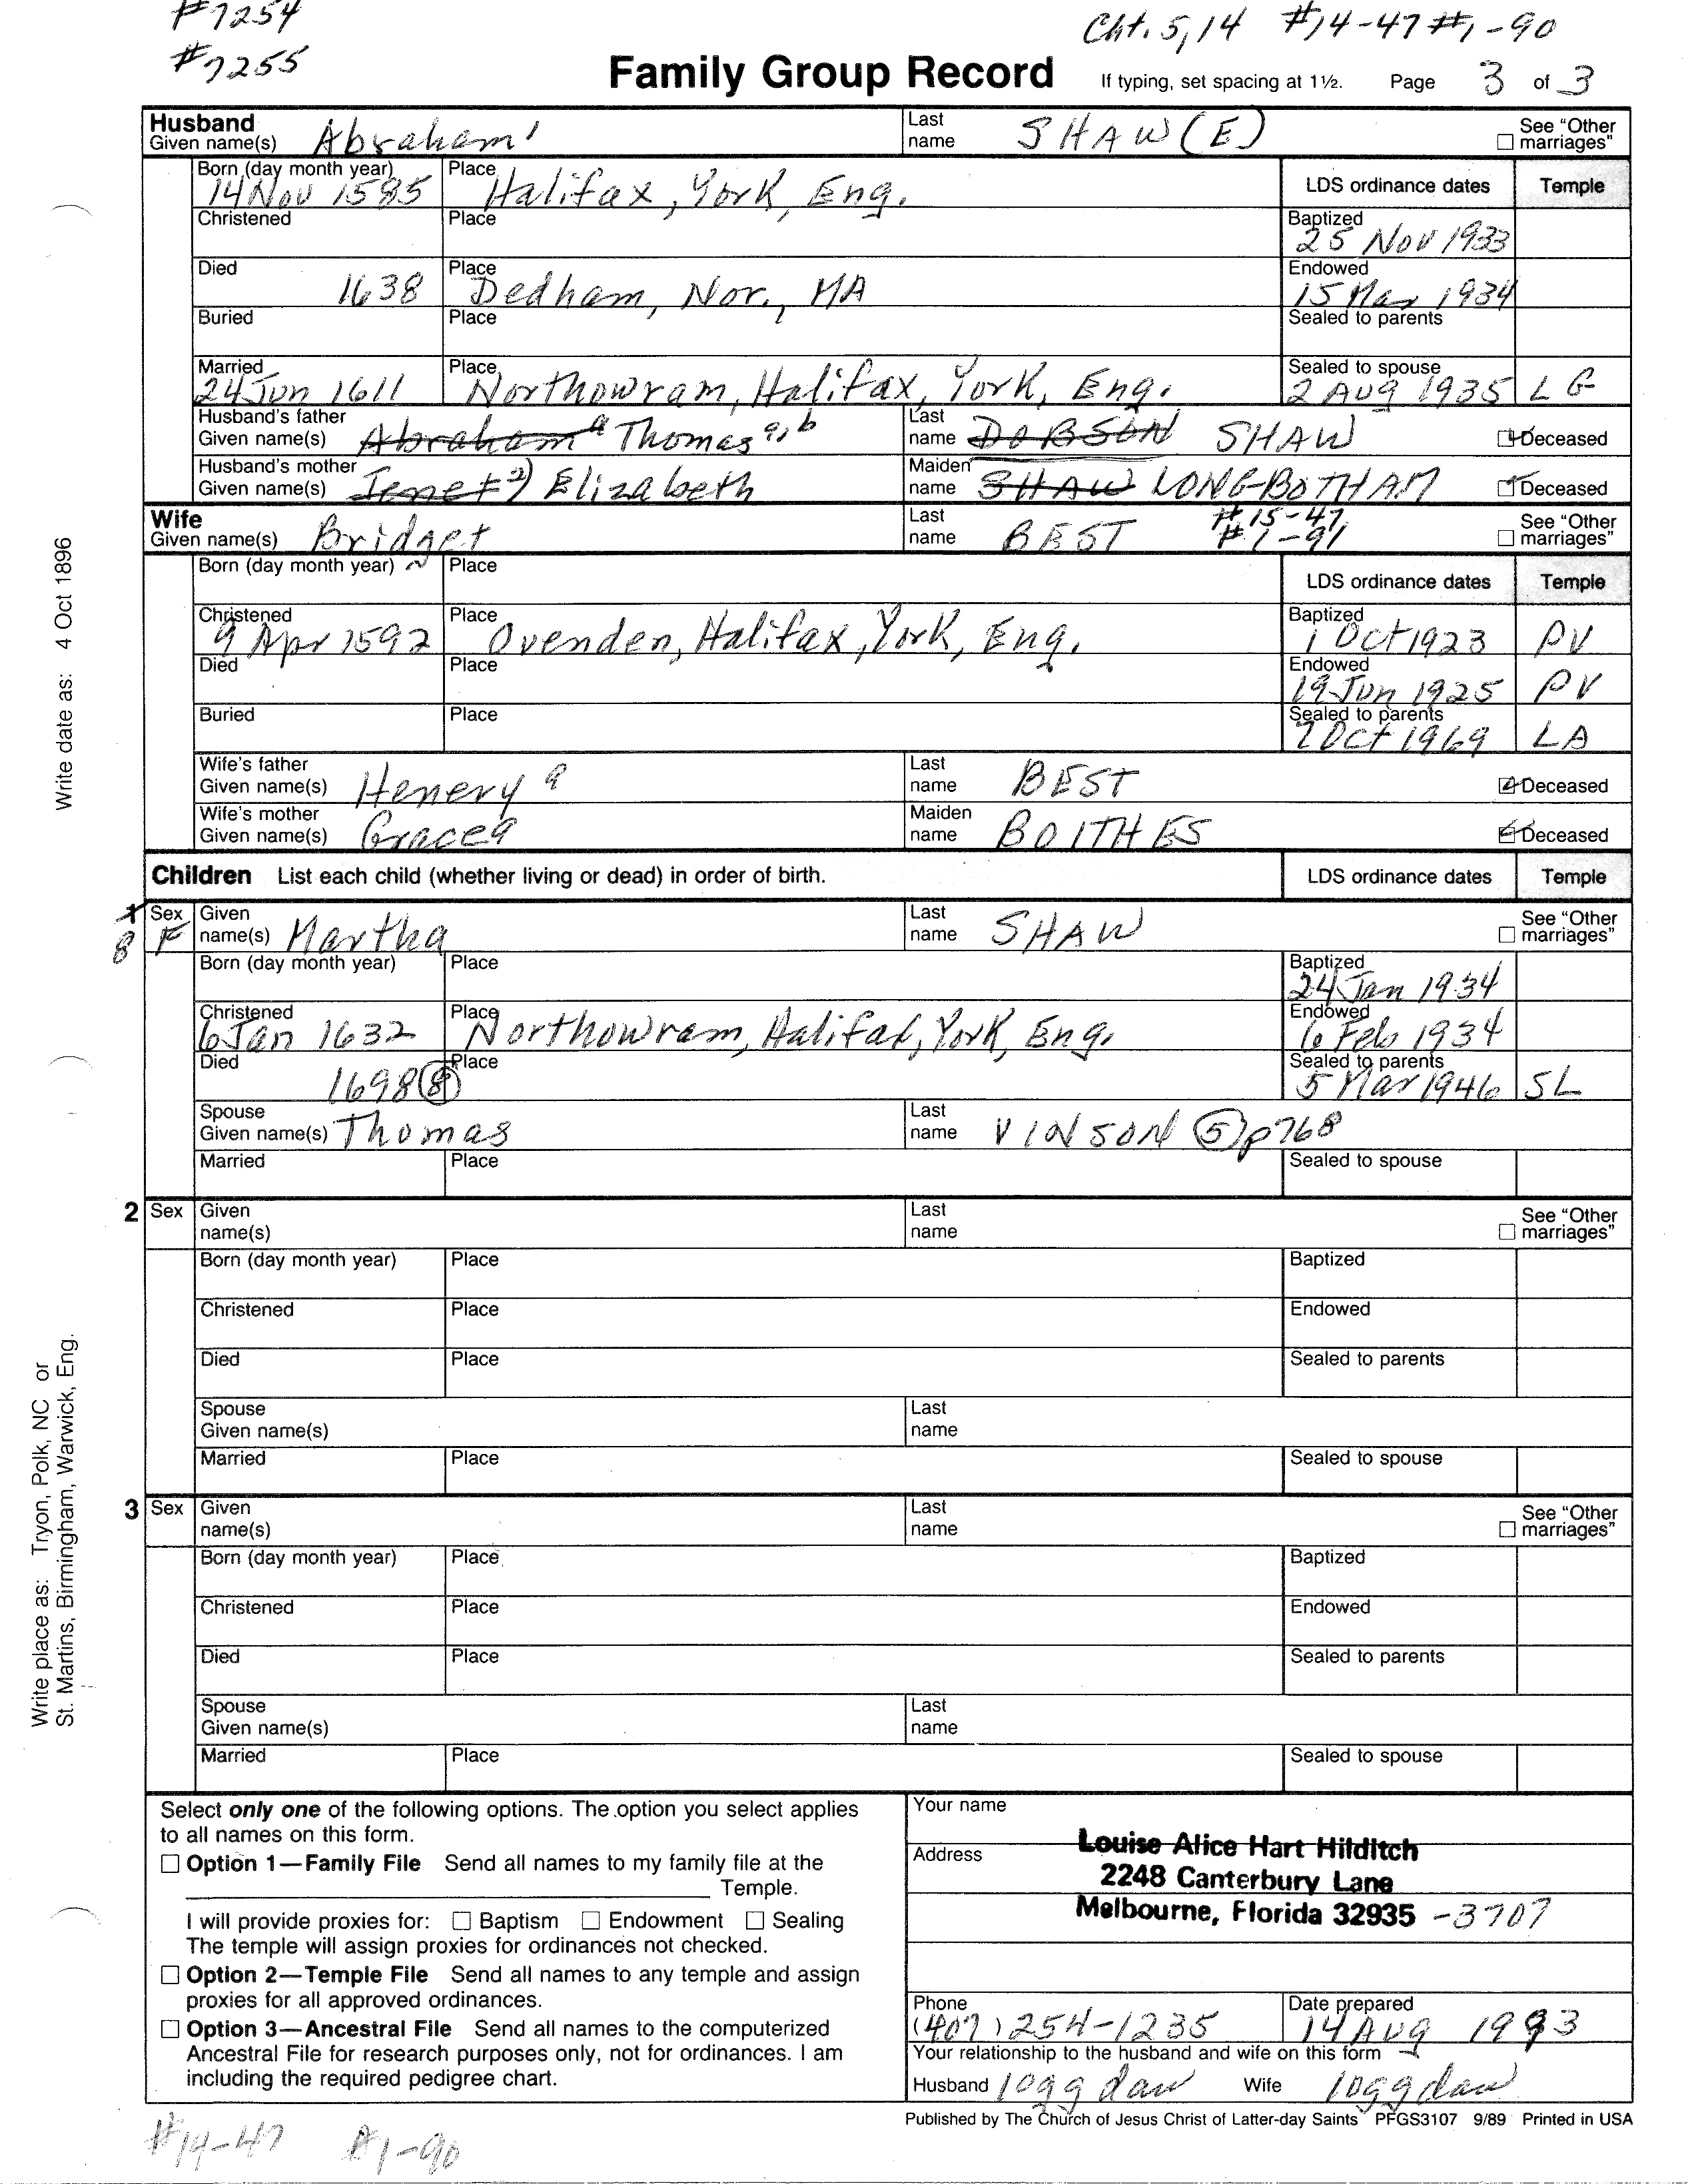 #7254
#7255
Cht. 5,14 #14-47 #1-90
Family Group Record If typing, set spacing at 1½. Page 3 of 3
Husband Given name(s) Abraham' Last name SHAW (E) See "Other marriages"
Born (day month year) 14 Nov 1585 Place Halifax, York, Eng. LDS ordinance dates Temple
Christened Place Baptized 25 Nov 1933
Died 1638 Place Dedham, Nor., MA Endowed 15 Mar 1934
Buried Place Sealed to parents
Married 24 Jun 1611 Place Northowram, Halifax, York, Eng. Sealed to spouse 2 Aug 1935 LG
Husband's father Given name(s) Abraham a Thomas a,b Last name DOBSON SHAW Deceased
Husband's mother Given name(s) Jenet 2) Elizabeth Maiden name SHAW LONGBOTHAM Deceased
Wife Given name(s) Bridget Last name BEST #15-47, #1-91 See "Other marriages"
Born (day month year) Place LDS ordinance dates Temple
Christened 9 Apr 1592 Place Ovenden, Halifax, York, Eng. Baptized 1 Oct 1923 PV
Died Place Endowed 19 Jun 1925 PV
Buried Place Sealed to parents 7 Oct 1969 LA
Wife's father Given name(s) Henery 9 Last name BEST Deceased
Wife's mother Given name(s) Grace 9 Maiden name BOITHES Deceased
Children List each child (whether living or dead) in order of birth. LDS ordinance dates Temple
1 8 Sex F Given name(s) Martha Last name SHAW See "Other marriages"
Born (day month year) Place Baptized 24 Jan 1934
Christened 6 Jan 1632 Place Northowram, Halifax, York, Eng. Endowed 6 Feb 1934
Died 1698 (8) Place Sealed to parents 5 Mar 1946 SL
Spouse Given name(s) Thomas Last name VINSON (5) p768
Married Place Sealed to spouse
2 Sex Given name(s) Last name See "Other marriages"
Born (day month year) Place Baptized
Christened Place Endowed
Died Place Sealed to parents
Spouse Given name(s) Last name
Married Place Sealed to spouse
3 Sex Given name(s) Last name See "Other marriages"
Born (day month year) Place Baptized
Christened Place Endowed
Died Place Sealed to parents
Spouse Given name(s) Last name
Married Place Sealed to spouse
Write date as: 4 Oct 1896
Write place as: Tryon, Polk, NC or
St. Martins, Birmingham, Warwick, Eng.
Select only one of the following options. The option you select applies
to all names on this form.
Option 1—Family File Send all names to my family file at the
Temple.
I will provide proxies for: Baptism Endowment Sealing
The temple will assign proxies for ordinances not checked.
Option 2—Temple File Send all names to any temple and assign
proxies for all approved ordinances.
Option 3—Ancestral File Send all names to the computerized
Ancestral File for research purposes only, not for ordinances. I am
including the required pedigree chart.
Your name
Louise Alice Hart Hilditch
Address
2248 Canterbury Lane
Melbourne, Florida 32935 -3707
Phone (407) 254-1235 Date prepared 14 Aug 1993
Your relationship to the husband and wife on this form
Husband 10gg daw Wife 10gg daw
Published by The Church of Jesus Christ of Latter-day Saints PFGS3107 9/89 Printed in USA
#14-47 #1-90